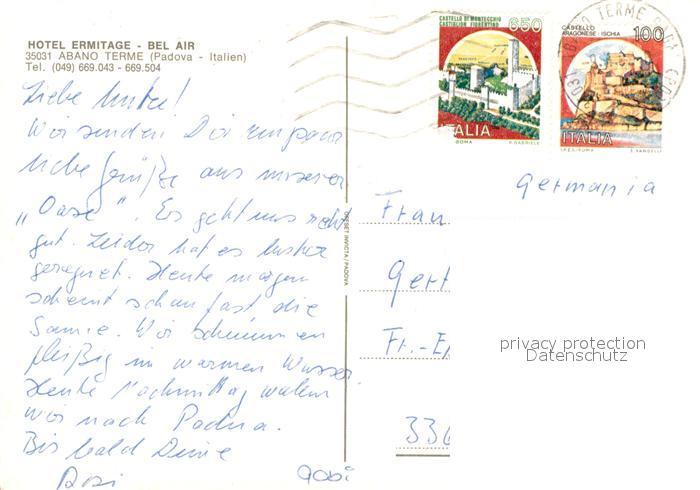 HOTEL ERMITAGE - BEL AIR
35031 ABANO TERME (Padova - Italien)
Tel. (049) 669.043 - 669.504
CASTELLO DI MONTECCHIO
CASTIGLION FIORENTINO
650
ITALIA
ROMA
CASTELLO
ARAGONESE - ISCHIA
100
ITALIA
I.P.Z.S. - ROMA
ABANO TERME
Liebe
Wir senden Dir ein paar
liebe Grüße aus unserer
„Oase". Es geht uns recht
gut. Leider hat es
geregnet. Heute morgen
scheint schon fast die
Sonne. Wir schwimmen
fleißig im warmen Wasser.
Heute Nachmittag wollen
wir nach Padua.
Bis bald Deine
Germania
Frau
Gert
Fr.-E
336
OFFSET INVICTA / PADOVA
privacy protection
Datenschutz